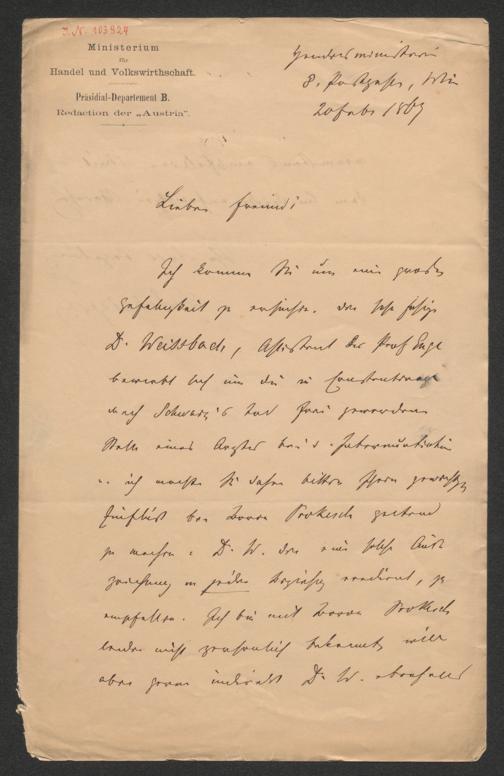 J. N. 103924
Ministerium
für
Handel und Volkswirthschaft.
Präsidial-Departement B.
Redaction der „Austria”.
Handelsministerium
8. Postgasse, Wien
20 Febr 1869
Lieber Freund!
Ich komme Sie um eine große
Gefälligkeit zu ersuchen. Der sehr fähige
Dr. Weissbach, Assistent des Prof
bewirbt sich um die in Constantinopel
nach Schwarz's Tod frei gewordene
Stelle eines Arztes bei d. Internuntiatur
u. ich möchte Sie daher bitten Ihren gewichtigen
Einfluß bei Baron Prokesch geltend
zu machen u. Dr. W. der eine solche Aus
zeichnung in jeder Beziehung verdient, zu
empfehlen. Ich bin mit Baron Prokesch
leider nicht persönlich bekannt, will
aber gerne indirekt Dr. W. ebenfalls